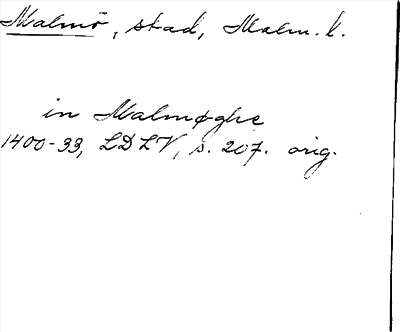 Malmö, stad, Malm. l.
in Malmøghe
1400-33, LDLV, s. 207. orig.